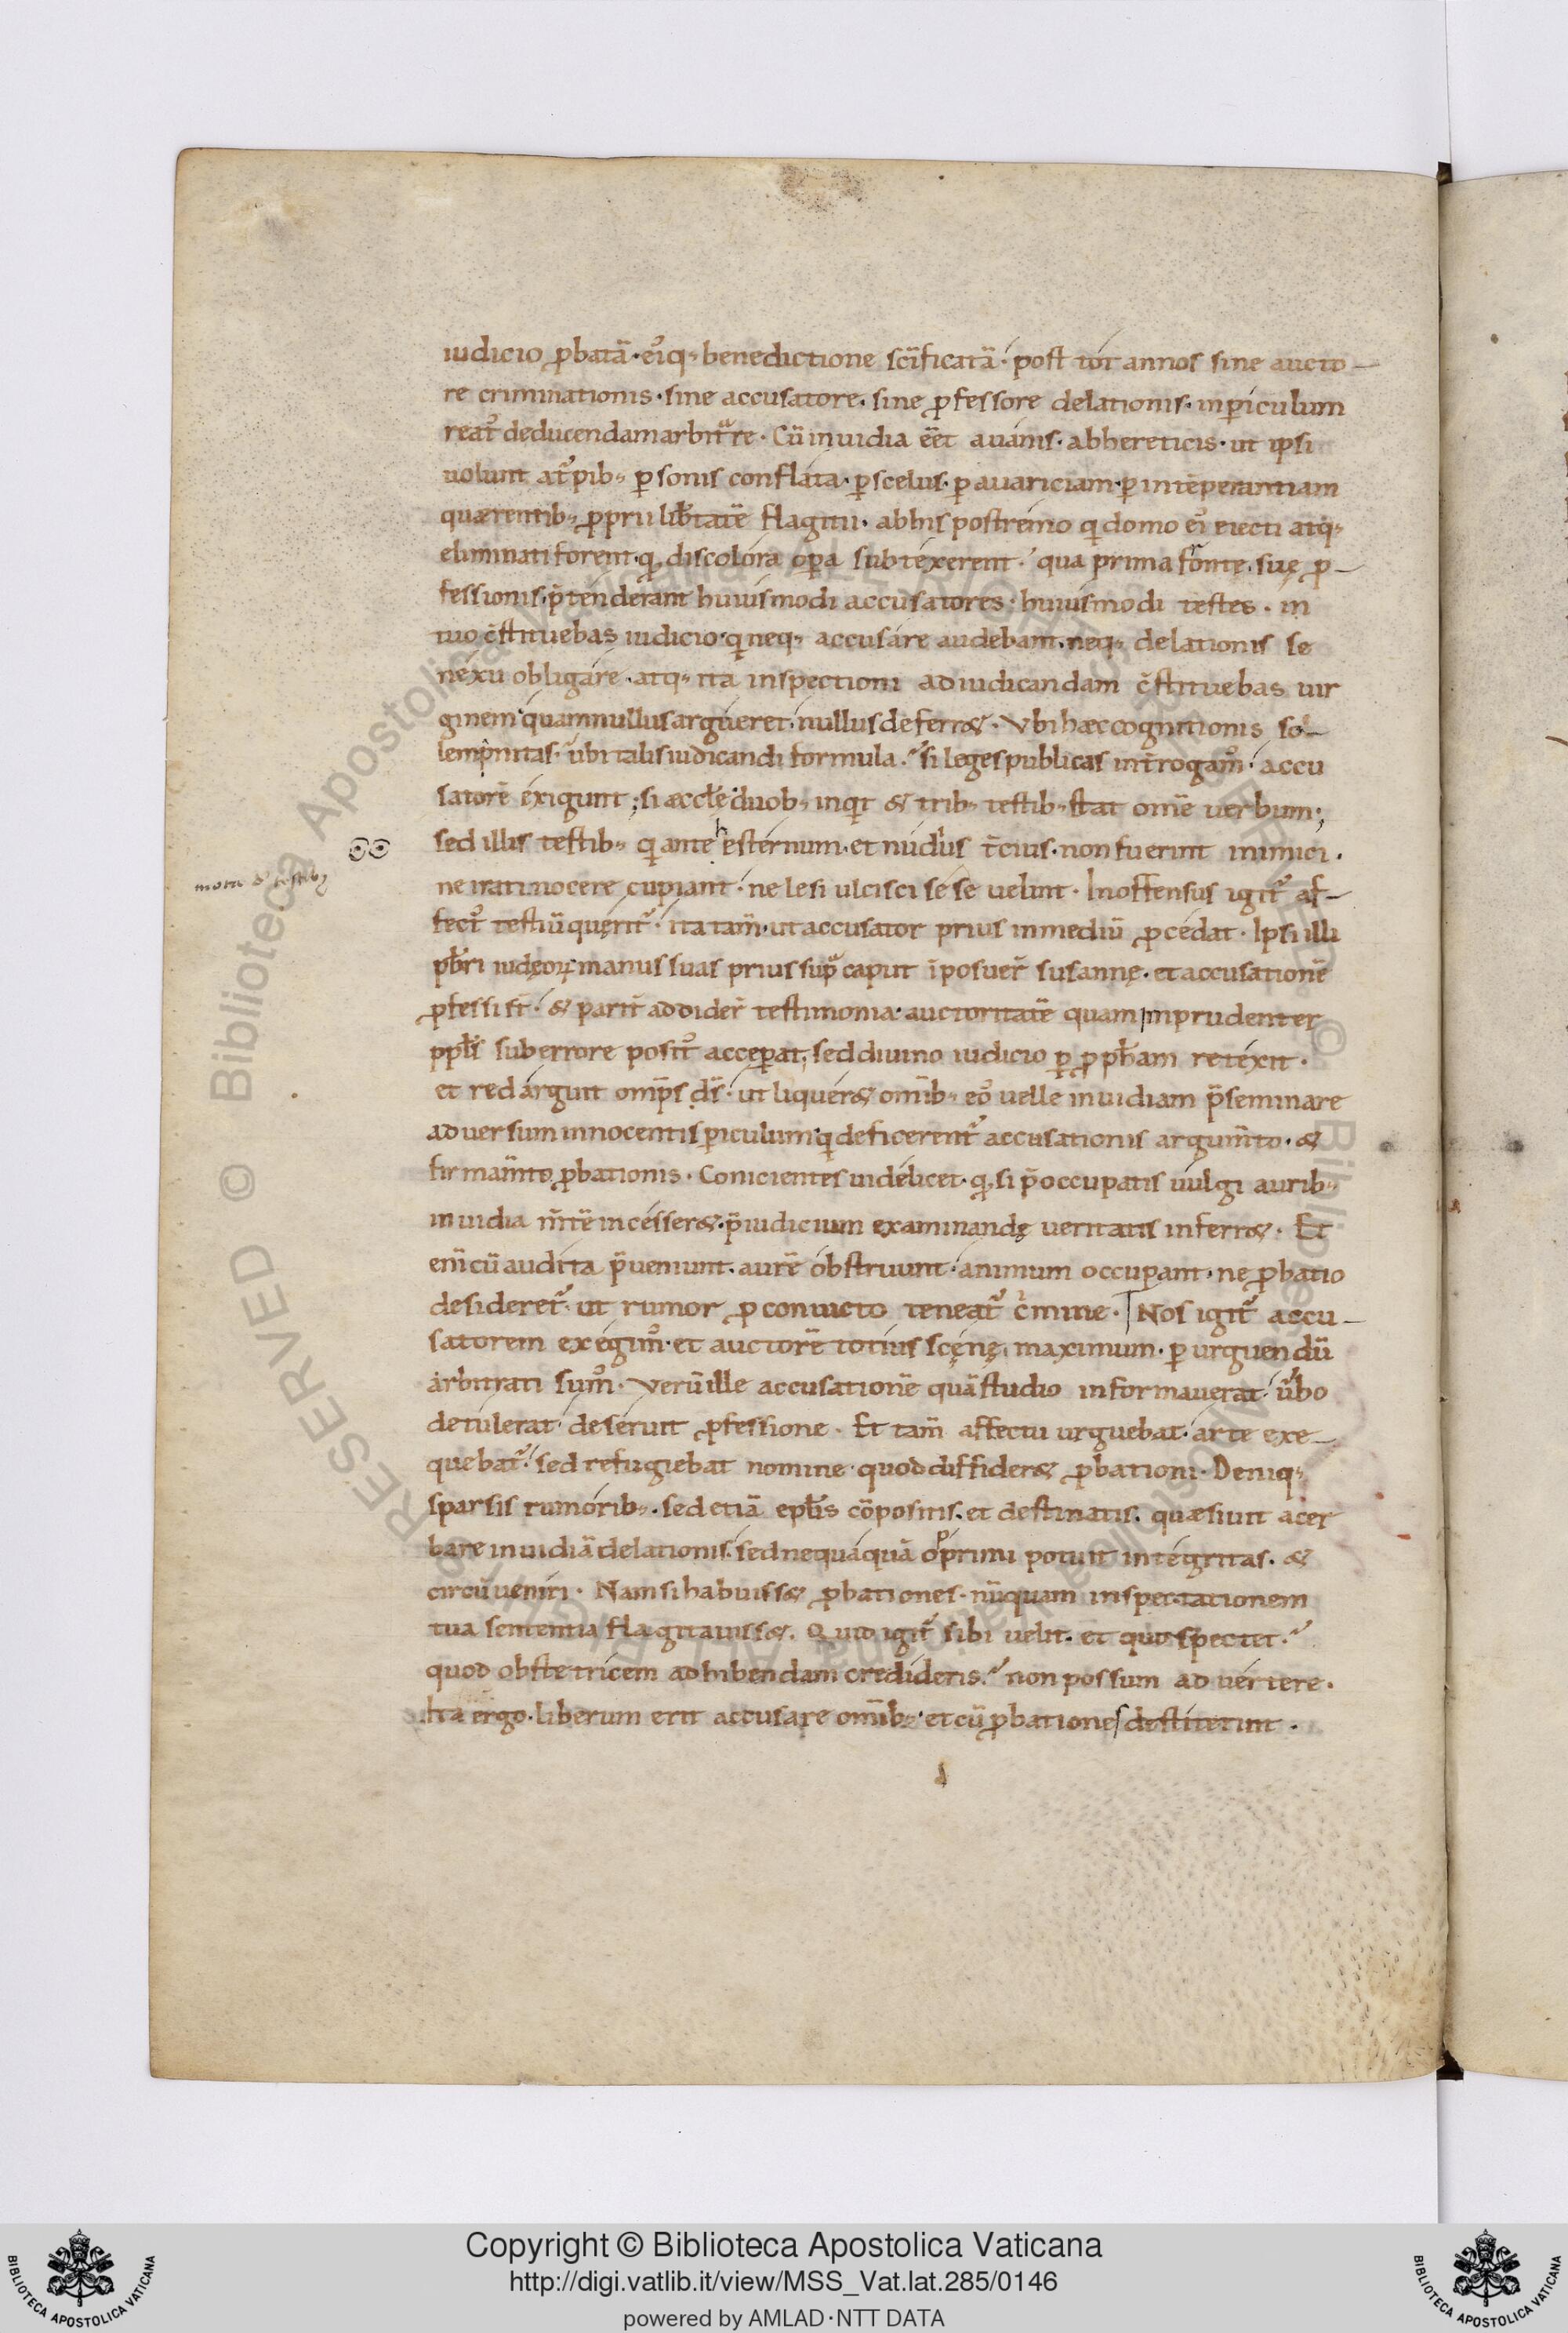 iudicio ꝓbatā· ei᷒q· benedictione sc̄ificatā· post tot annos sine aucto-
re criminationis· sine accusatore· sine ꝓfessore delationis· inꝑiculum
reat᷒ deducendam arbitͣre· Cū inuidia eēt a uanis· abhereticis· ut ipsi
uolunt at᷒pib· ꝑsonis conflata· ꝑ scelus· ꝑ auariciam· ꝑ intēperantiam
quærentib· ꝓprii lib̄tatē flagitii· abhis postremo q̇ domo ei᷒ eiecti atq·
eliminati forent· qđ discolora oꝑa subtexerent· qua prima fronte suę ꝓ-
fessionis p̄tenderant huiusmodi accusatores· huiusmodi testes· in
tuo c̄stituebas iudicio· q̇ neq· accusare audebant· neq· delationis se
nexu obligare· atq· ita inspectioni adiudicandam c̄stituebas uir
ginem quam nullus argueret· nullus deferr&· Vbi hæc cognitionis so-
lempnitas· ubi talis iudicandi formula· si leges publicas int̄rogam᷒· accu
satorē exigunt; si æccłę duob· inqt & trib· testib· stat omē uerbum;
sed illis testib· q̇ ante hesternum· et nudi᷒us t̄cius· non fuerint inimici·
mota d' testibȝ
ne irati nocere cupiant· ne lesi ulcisci se se uelint· Inoffensus igit᷒ af-
fect᷒ testiū querit᷒· ita tam̄· ut accusator prius in mediū ꝓcedat· Ipsi illi
pƀri iudęoꝝ manus suas prius supͣ caput īposuer̄ susannę· et accusationē
ꝓfessi st̄· & parit̄ addider̄ testimonia· auctoritatē quam imprudenter
pplīs sub errore posit᷒ acceperat· sed diuino iudicio ꝑ ꝓpħam retexit·
et redarguit omp̄s ds̄· ut liquer& omīb· eo᷒ uelle inuidiam p̄seminare
aduersum innocentis ꝑiculum q̇ deficerent᷒ accusationis argum̄to· &
firmam̄to ꝓbationis· Conicientes uidelicet· qđ si p̄occupatis uulgi aurib·
inuidia m̄tē incesser&· p̄iudicium examinandę ueritatis inferr&· Et
enī cū audita p̄ueniunt· aurē obstruunt· animum occupant· ne ꝓbatio
desideret᷒· ut rumor ꝓ conuicto teneat᷒ c̍mine· Nos igit᷒ accu-
satorem exegim᷒· et auctorē totius scęnę· maximum· ꝑurguendū
arbitrati sum᷒· Verū ille accusationē quā studio informauerat· u̍bo
detulerat· deseruit ꝓfessione· Et tam̄ affectu urguebat· arte exe-
quebat᷒· sed refugiebat nomine· quod diffider& ꝓbationi· Deniq·
sparsis rumorib· sed etiā ep̄lis cōpositis· et destinatis· quæsiuit acer
bare inuidiā delationis· sed nequaquā opprimi potuit integritas· &
circūueniri· Nam si habuiss& ꝓbationes· nūquam inspectationem
tua sententia flagitauiss&· Quid igit᷒ sibi uelit· et quo spectet·
quod obstetricem adhibendam credideris· non possum aduertere·
Ita ergo· liberum erit accusare omīb· et cū ꝓbationes destiterint·
RESERVED © Biblioteca Apostolica
Copyright © Biblioteca Apostolica Vaticana
http://digi.vatlib.it/view/MSS_Vat.lat.285/0146
powered by AMLAD·NTT DATA
BIBLIOTECA APOSTOLICA VATICANA
BIBLIOTECA APOSTOLICA VATICANA